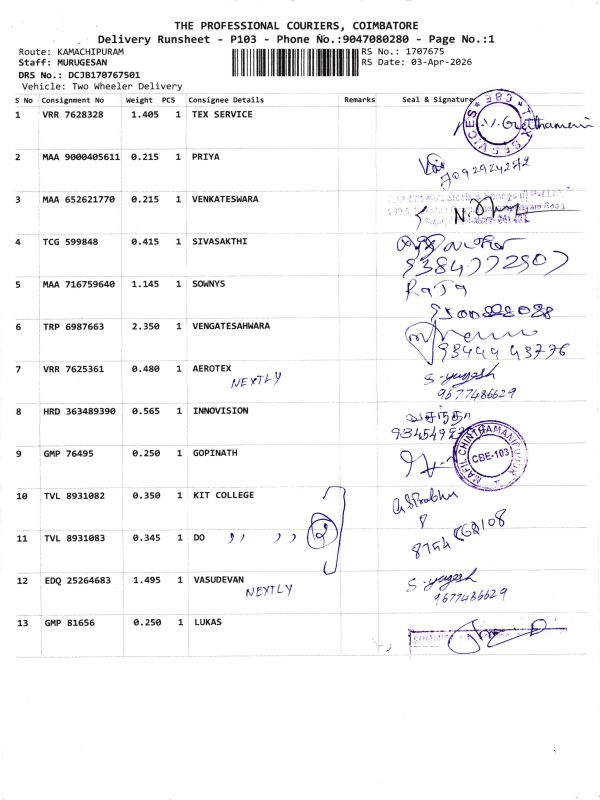 THE PROFESSIONAL COURIERS, COIMBATORE
Delivery Runsheet - P103 - Phone No.:9047080280 - Page No.:1
Route: KAMACHIPURAM RS No.: 1707675
Staff: MURUGESAN RS Date: 03-Apr-2026
DRS No.: DCJB170767501
Vehicle: Two Wheeler Delivery
S No Consignment No Weight PCS Consignee Details Remarks Seal & Signature
1 VRR 7628328 1.405 1 TEX SERVICE
2 MAA 9000405611 0.215 1 PRIYA
3 MAA 652621770 0.215 1 VENKATESWARA
4 TCG 599848 0.415 1 SIVASAKTHI
9384772907
5 MAA 716759640 1.145 1 SOWNYS
Raja
6 TRP 6987663 2.350 1 VENGATESAHWARA
9344443776
7 VRR 7625361 0.480 1 AEROTEX S-yugesh
NEXTLY 9677486629
8 HRD 363489390 0.565 1 INNOVISION வசந்தா
9 GMP 76495 0.250 1 GOPINATH
MAFIL CHINTHAMANIPUDUR
CBE-103
10 TVL 8931082 0.350 1 KIT COLLEGE
11 TVL 8931083 0.345 1 DO ,, ,, 2
12 EDQ 25264683 1.495 1 VASUDEVAN S-yugesh
NEXTLY 9677486629
13 GMP 81656 0.250 1 LUKAS